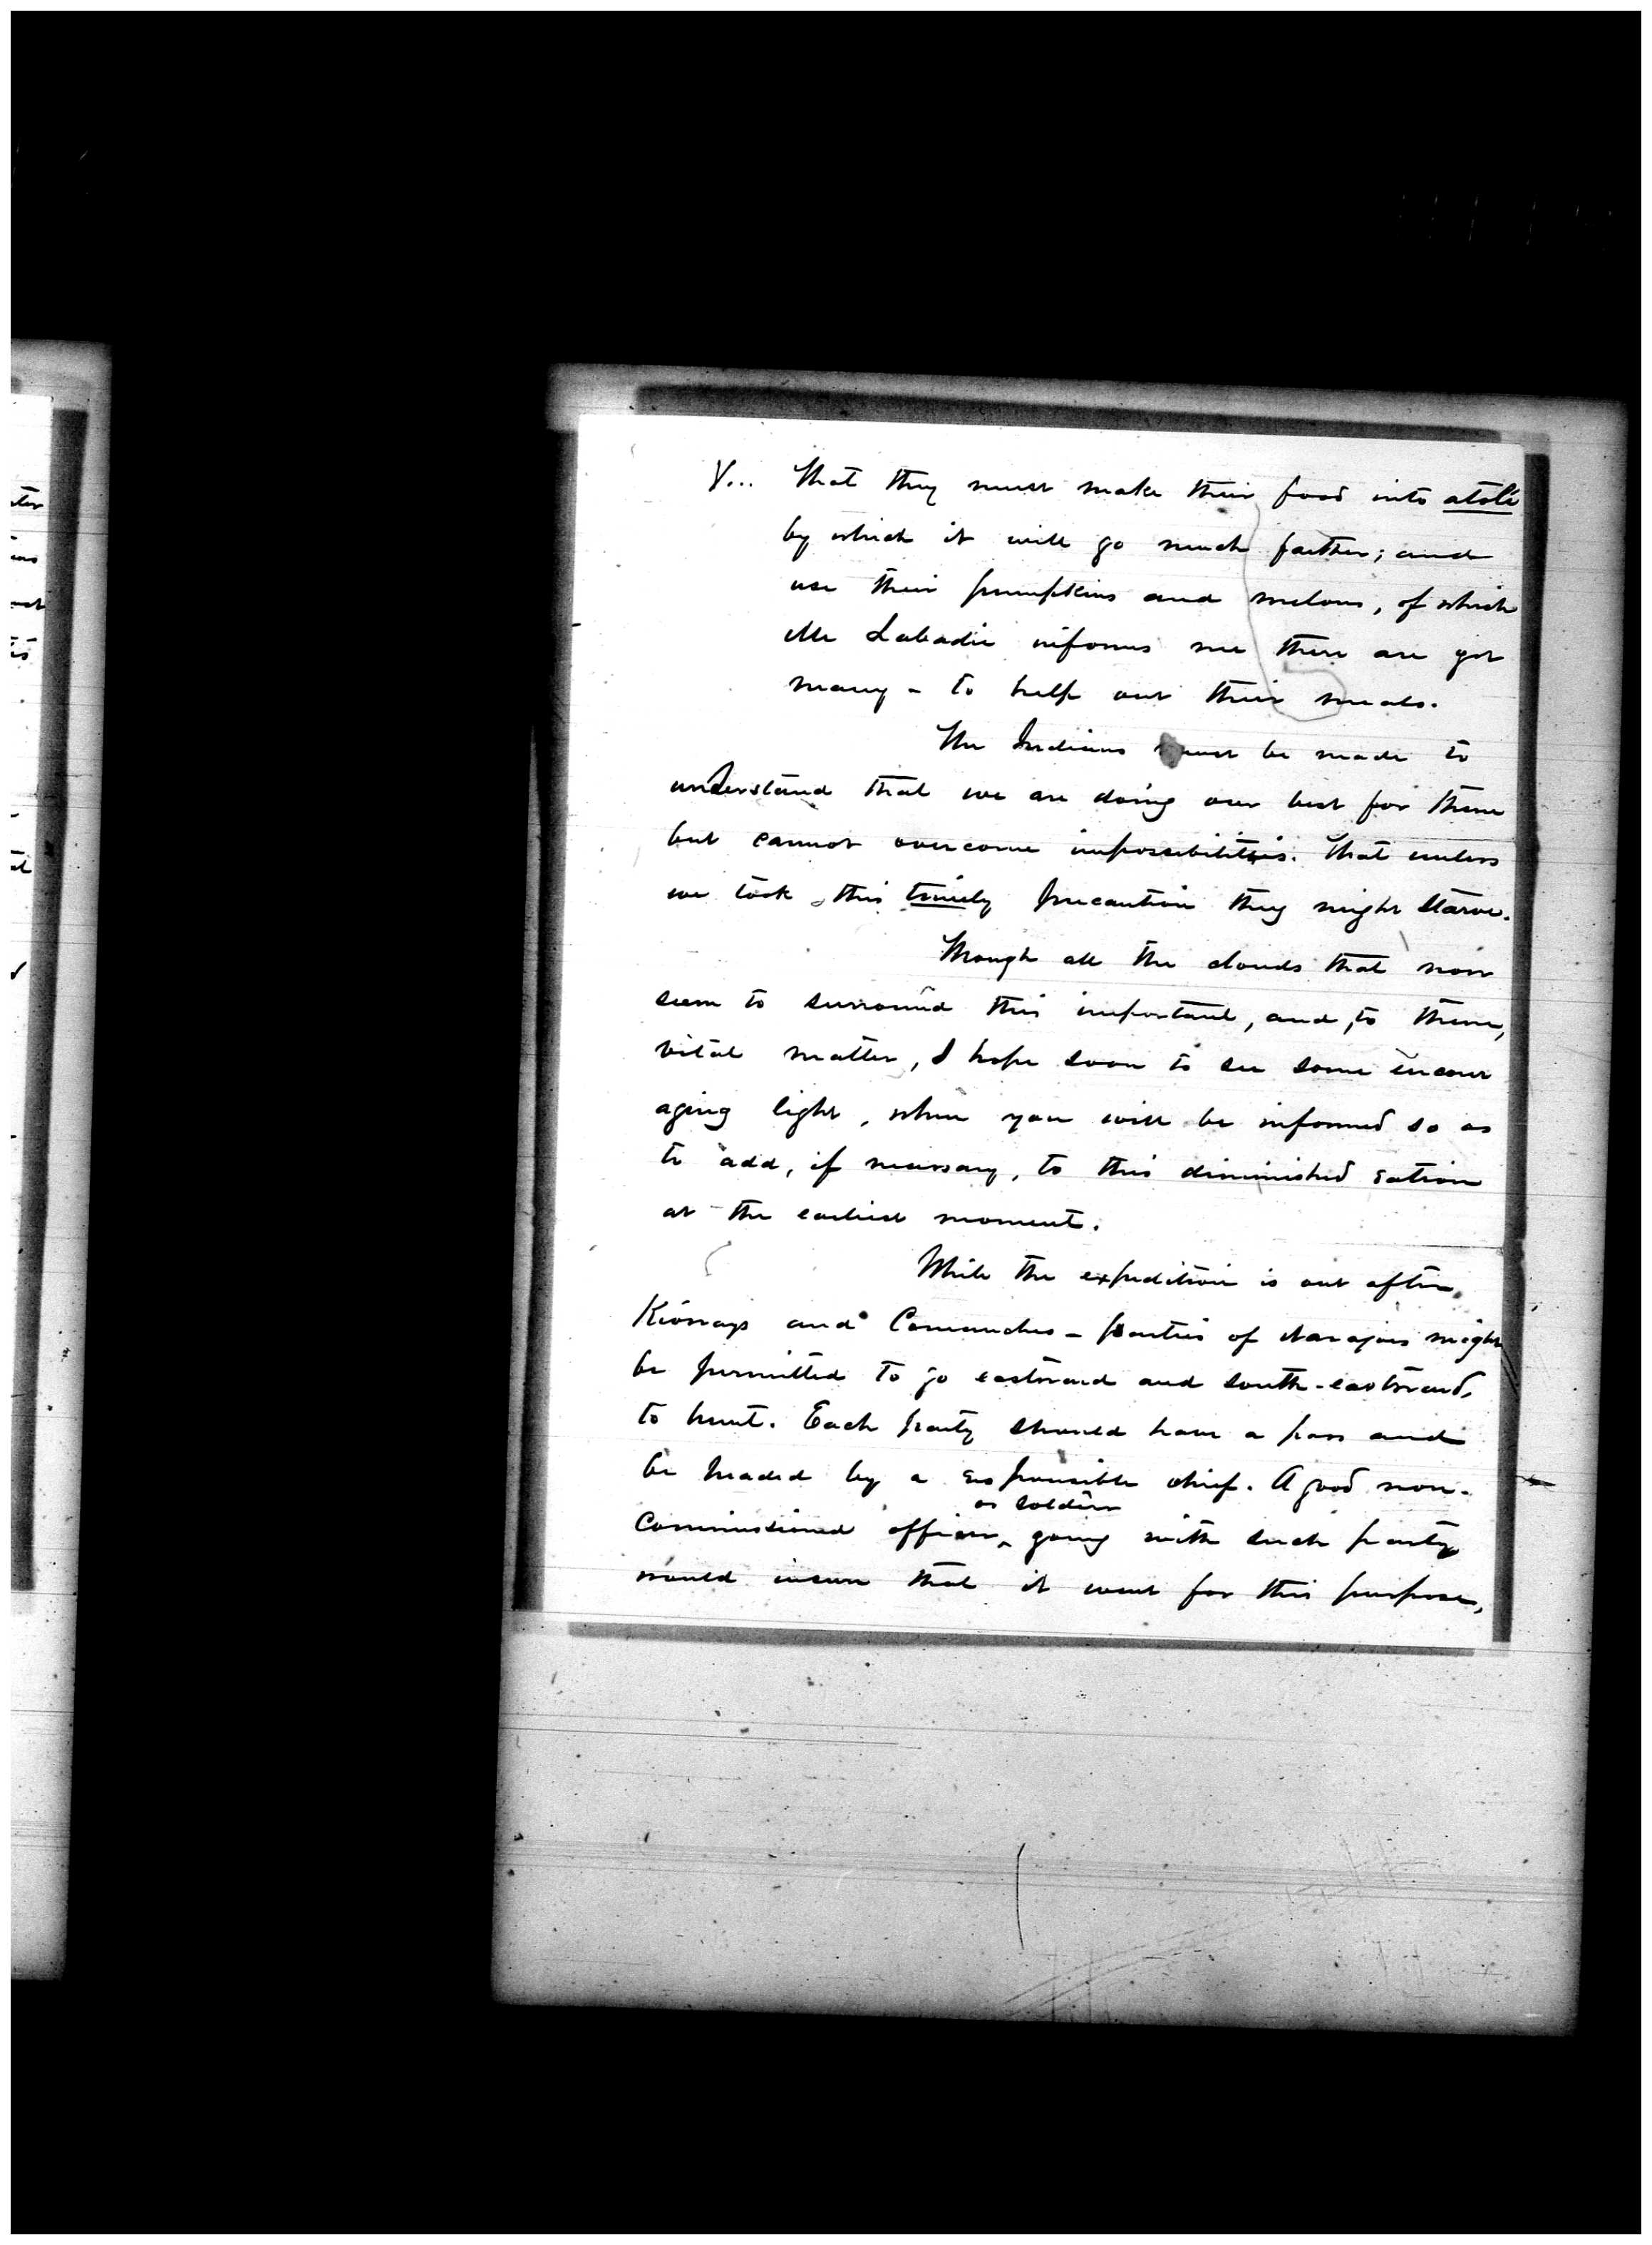 V... That they must make their food into atole
by which it will go much farther; and
use their pumpkins and melons, of which
Mr Labadie informs me there are yet
many - to help out their meals.
The Indians must be made to
understand that we are doing our best for them
but cannot overcome impossibilities. That unless
we took this timely precaution they might starve.
Through all the clouds that now
seem to surround this important, and, to them,
vital matter, I hope soon to see some encour
aging light, when you will be informed so as
to add, if necessary, to this diminished ration
at the earliest moment.
While the expedition is out after
Kiowas and Comanches - parties of Navajoes might
be permitted to go eastward and south-eastward,
to hunt. Each party should have a pass and
be headed by a responsible chief. A good non-
or soldier
commissioned officer going with such party
would insure that it went for this purpose,